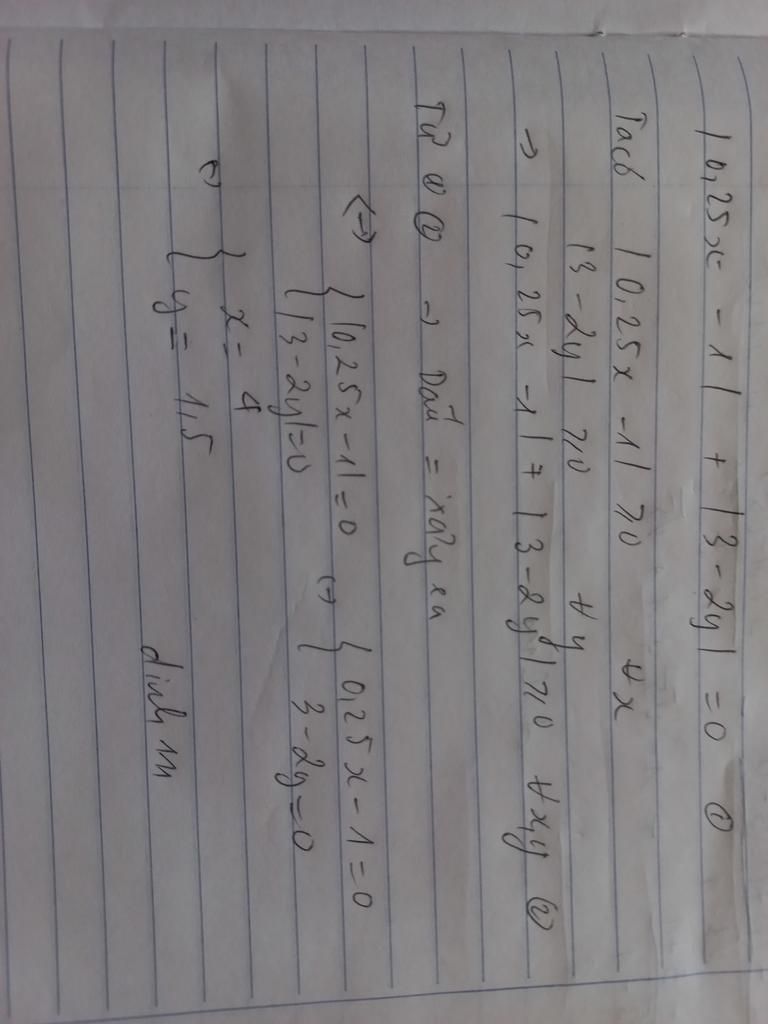 |0,25x - 1| + |3 - 2y| = 0 ①
Ta có |0,25x - 1| ⩾ 0 ∀x
|3 - 2y| ⩾ 0 ∀y
→ |0,25x - 1| + |3 - 2y| ⩾ 0 ∀x,y ②
Từ ① ② → Dấu = xảy ra
<=> { |0,25x - 1| = 0 <=> { 0,25x - 1 = 0
{ |3 - 2y| = 0 { 3 - 2y = 0
<=> { x = 4
{ y = 1,5